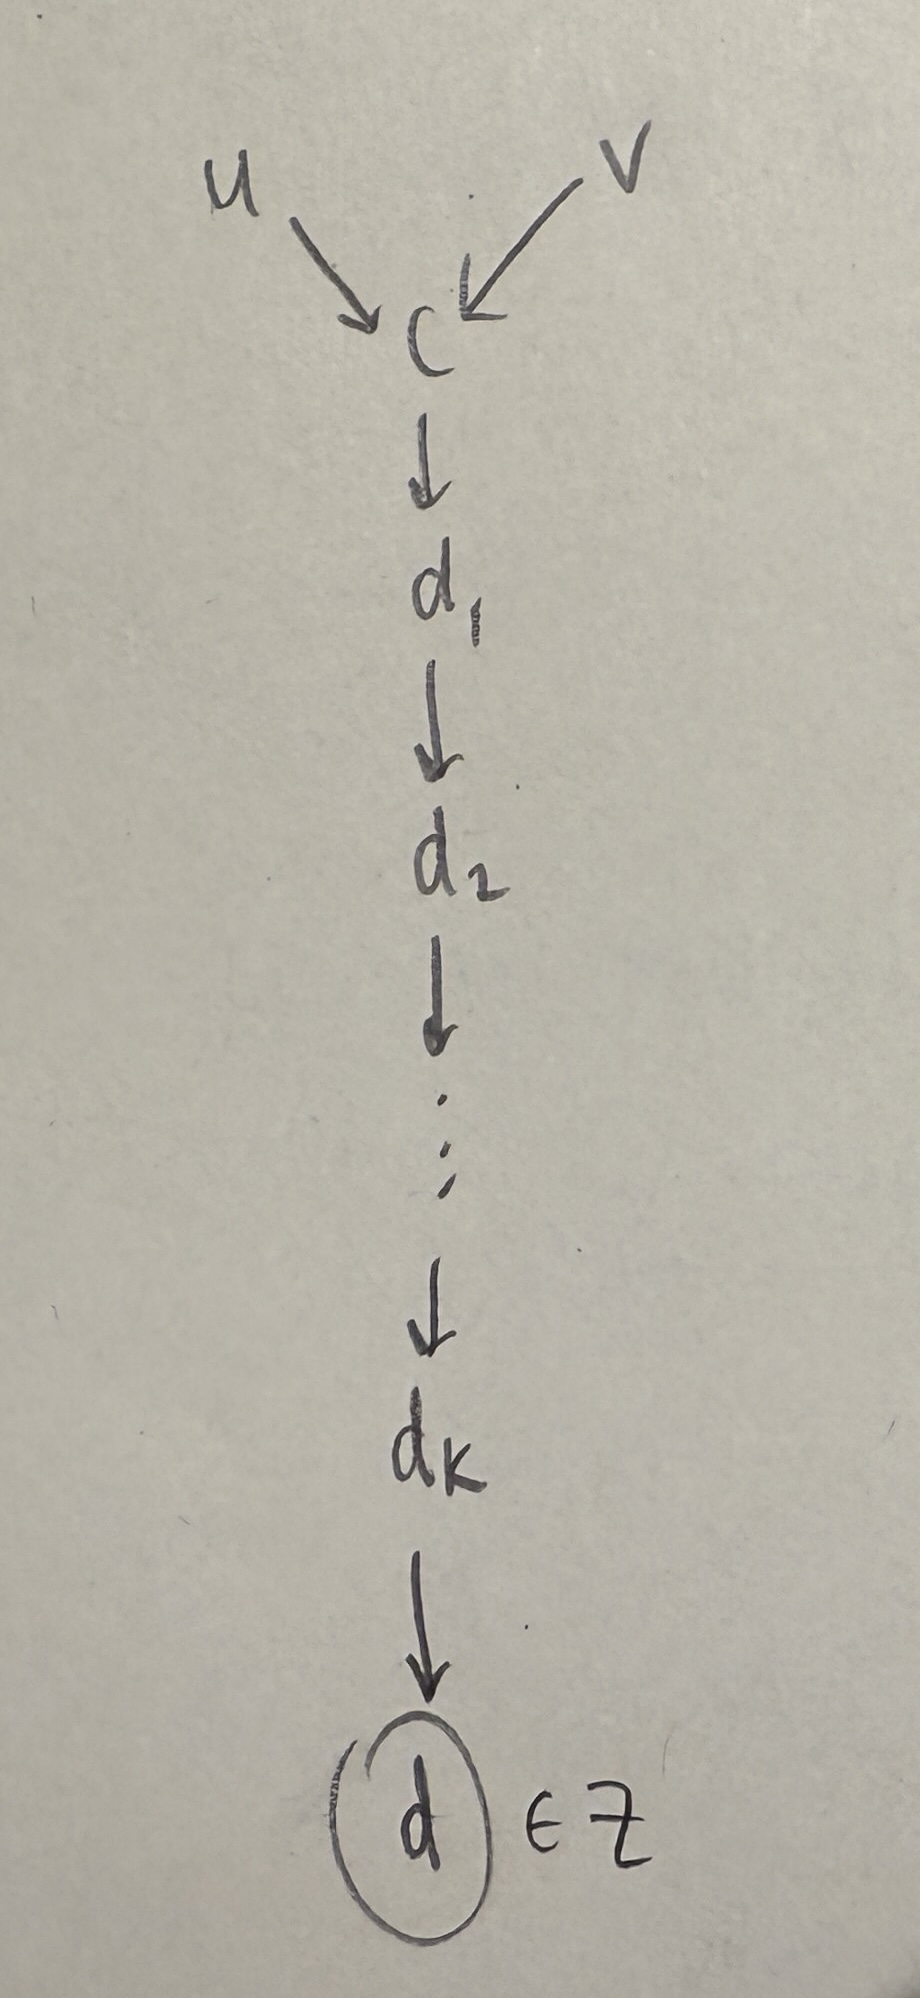 u v
c
↓
d₁
↓
d₂
↓
⋮
↓
dₖ
↓
d ∈ Z